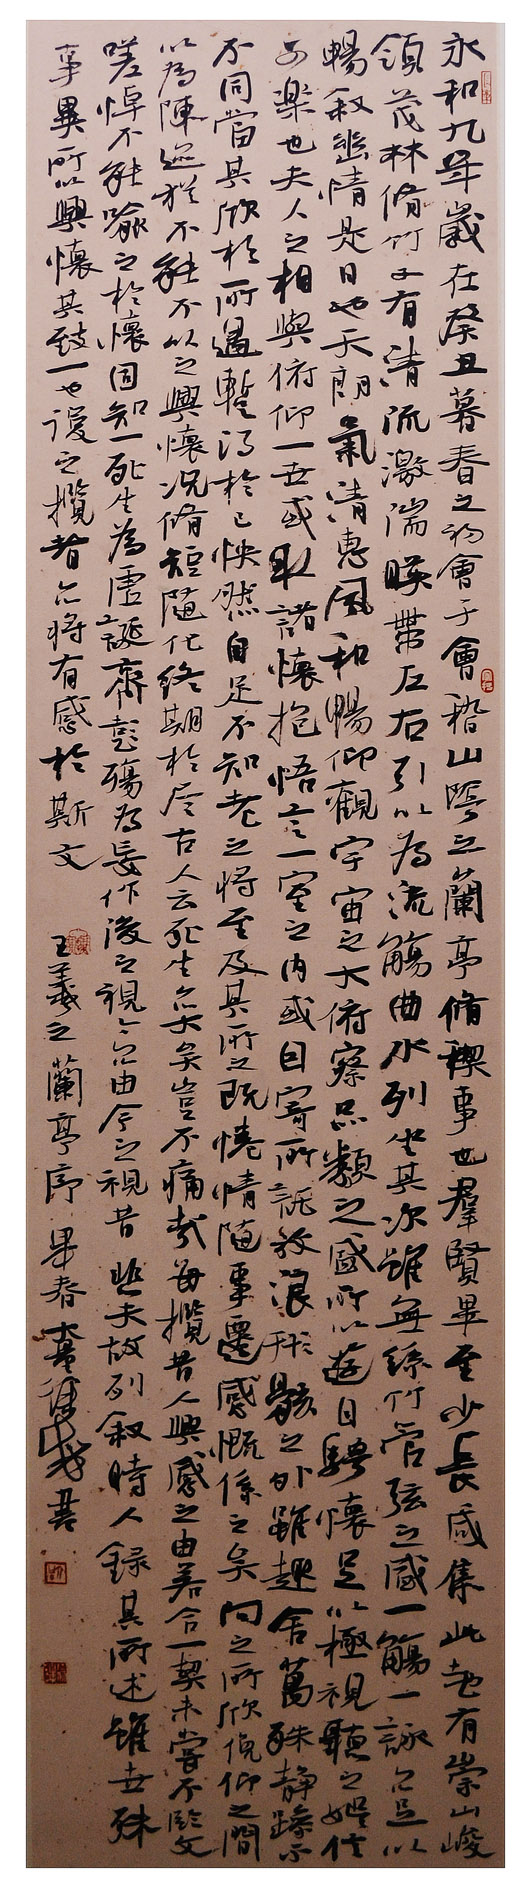 永和九年歲在癸丑暮春之初會于會稽山陰之蘭亭脩禊事也羣賢畢至少長咸集此地有崇山峻
領茂林脩竹又有清流激湍暎帶左右引以為流觴曲水列坐其次雖無絲竹管弦之盛一觴一詠亦足以
暢叙幽情是日也天朗氣清惠風和暢仰觀宇宙之大俯察品類之盛所以遊目騁懷足以極視聽之娱信
可樂也夫人之相與俯仰一世或取諸懷抱悟言一室之內或因寄所託放浪形骸之外雖趣舍萬殊静躁不
不同當其欣於所遇蹔得於己怏然自足不知老之將至及其所之既惓情隨事遷感慨係之矣向之所欣俛仰之間
以為陳迹猶不能不以之興懷況脩短隨化終期於尽古人云死生亦大矣豈不痛哉每攬昔人興感之由若合一契未嘗不臨文
嗟悼不能喻之於懷固知一死生為虛誕齊彭殤為妄作後之視今亦由今之視昔悲夫故列叙時人錄其所述雖世殊
事異所以興懷其致一也後之攬者亦将有感於斯文 王羲之蘭亭序 春 書